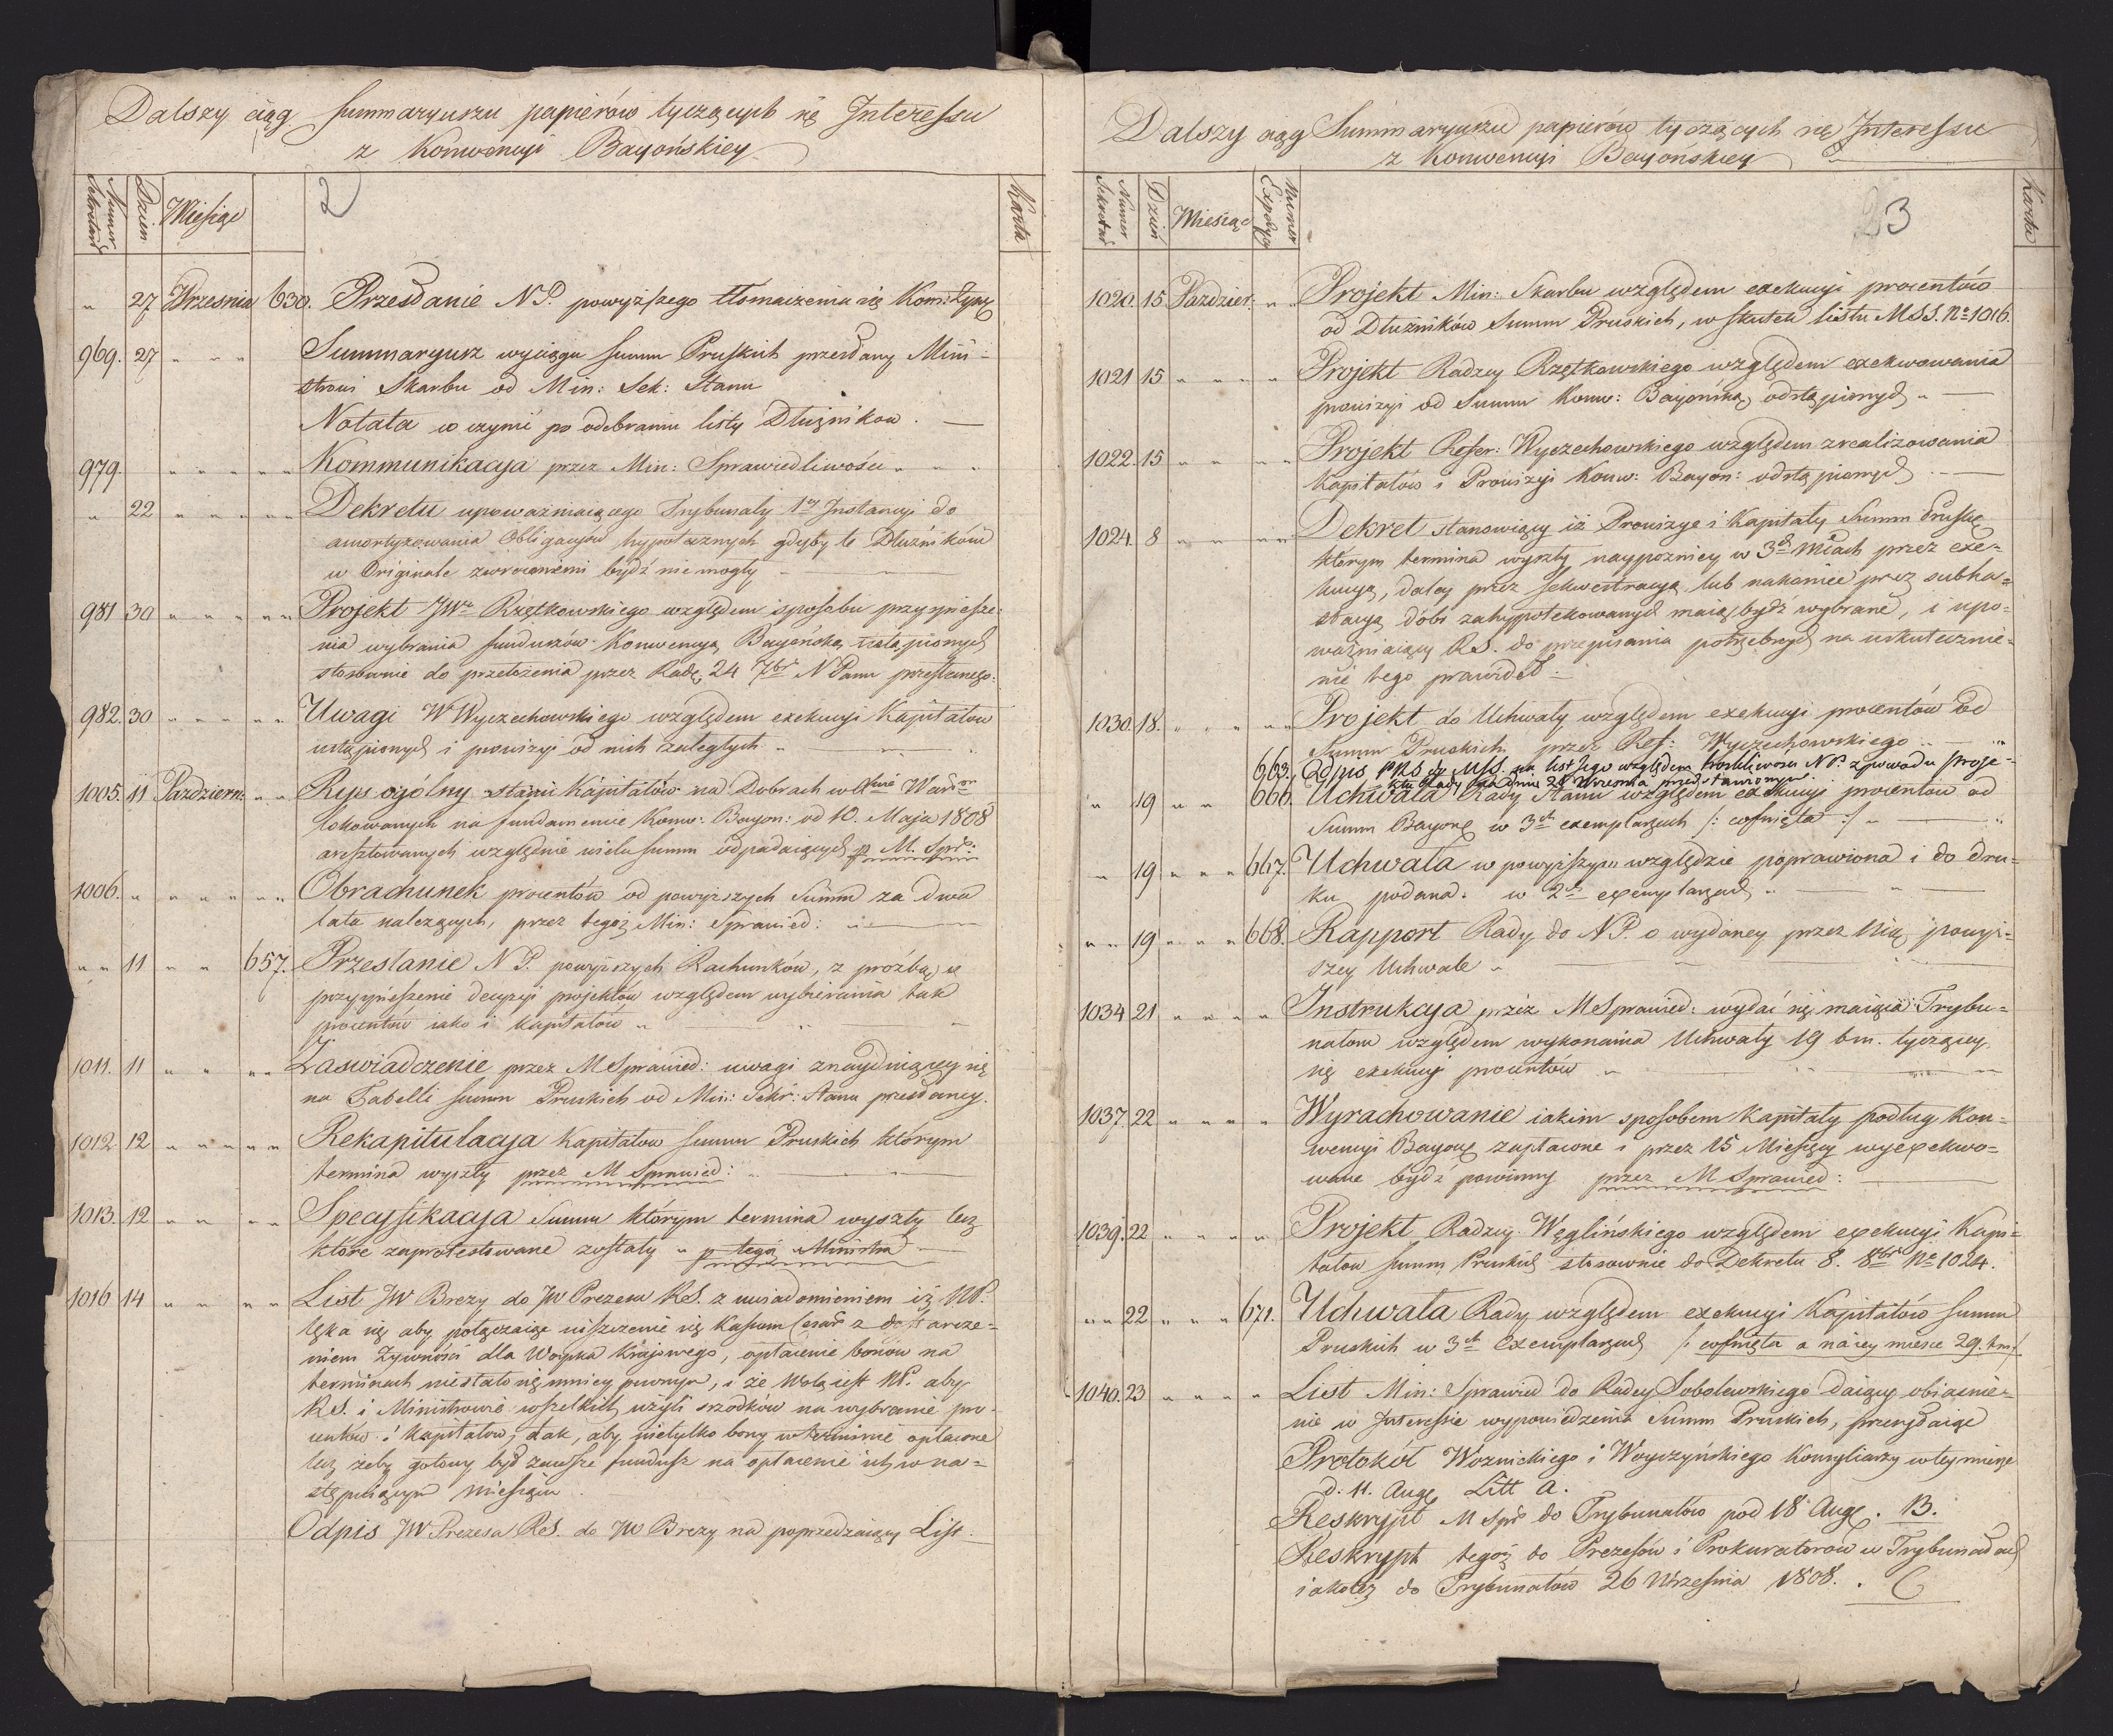 Dalszy ciąg Summaryuszu papierów tyczących się Interessu
z Konwencyi Bayońskiey
Numer Sekretari
Dzien
Miesiąc
2
Karta
" 27 Wrzesnia 630. Przesłanie N.P. powyższego tłomaczenia się
969. 27 " " " Summaryusz wyciągu summ Pruskich przesłany Mini-
strowi Skarbu od Min: Sek: Stanu
Notata co czynić po odebraniu listy Dłużnikow . —
979. " " " " " Kommunikacya przez Min: Sprawiedliwości " " "
" 22 " " " " " Dekretu upoważniaiącego Trybunały 1ey Instancyi do
amortyzowania Obligacyów hypotecznych gdyby te Dłużników
w Originale zwroconemi bydź nie mogły — —
981 30 " " " " " Projekt JWo Rzętkowskiego względem sposobu przyspiesze-
nia wybrania funduszów Konwencyą Bayońską ustąpionych
stosownie do przełożenia przez Radę 24 7br N Panu przesłanego.
982. 30 " " " " " Uwagi W Wyczechowskiego względem exekucyi Kapitałow
ustąpionych i prowizyi od nich zaległych " —
1005. 11 Pazdziern: " " Rys ogólny stanu Kapitałów na Dobrach w Xtwie
lokowanych na fundamencie Konw: Bayon: od 10. Maja 1808
aresztowanych względnie wielu summ odpadaiących p M. Spr:
1006. " " " " " " Obrachunek procentów od powyzszych Summ za dwa
lata należących, przez tegoż Min: Sprawied: " —
" " 11 " " 657. Przesłanie N P. powyższych Rachunków, z proźbą o
przyspieszenie decyzyi projektów względem wybierania tak
procentów iako i kapitałów " " —
1011. 11 " " " " Zaswiadczenie przez M Sprawied: uwagi znayduiącey się
na Tabelli summ Pruskich od Min: Sekr: Stanu przesłaney.
1012 12 " " " " " Rekapitulacya Kapitałow summ Pruskich którym
termina wyszły przez M Sprawied: " — " —
1013. 12 " " " " Specyfikacya Summ którym termina wyszły lecz
które zaprotestowane zostały " p tegoż Ministra —
1016 14 " " " " List JW Brezy do JW Prezesa RS. z uwiadomieniem iż NP.
lęka się aby połączaiąc uiszczenie się Kassom Cesar z dostarcze-
niem żywności dla Woyska Kraiowego, opłacenie bonów na
terminach nie stało się mniey pewnym, i że Wolą iest NP. aby
RS. i Ministrowie wszelkich użyli srzodków na wybranie pro-
centów i Kapitałow, tak, aby nietylko bony w terminie opłacone
lecz żeby gotowy był zawsze fundusz na opłacenie ich w na-
stępuiącym Miesiącu .
Odpis JW Prezesa RS. do JW Brezy na poprzedzaiący List.
Dalszy ciąg Summaryuszu papierów tyczących się Interessu
z Konwencyi Bayońskiey
Numer Sekretar
Dzień
Miesiąc
Numer Expedycyi
23
Karta
1020. 15 Pazdzier: " " Projekt Min: Skarbu względem exekucyi procentów
od Dłużników Summ Pruskich, w skutek listu MSS. No 1016.
1021 15 " " " " Projekt Radzcy Rzętkowskiego względem exekwowania
prowizyi od Summ Konw: Bayońską odstąpionych " —
1022. 15 " " " " Projekt Refer: Wyczechowskiego względem zrealizowania
Kapitałów i Prowizyi Konw: Bayon: odstąpionych " —
1024. 8 " " " " Dekret stanowiący iż Prowizye i Kapitały Summ Prusk
którym termina wyszły naypozniey w 3ch Mcach przez exe-
kucyą, daley przez sekwestracyą lub nakoniec przez subha-
stacyą dóbr zahyppotekowanych maią bydź wybrane, i upo-
ważniaiący RS. do przepisania potrzebnych na uskutecznie-
nie tego prawideł.
1030. 18. " " " " " Projekt do Uchwały względem exekucyi procentów od
Summ Pruskich przez Ref: Wyczechowskiego " — "
663. Odpis PRS do MSS. na list Jego względem troskliwosci NP. z powodu proje-
ktu Rady na dniu 24 Wrzesnia przedstawionym.
" 19 " " 666. Uchwała Rady Stanu względem exekucyi procentow od
Summ Bayoń w 3ch exemplarzach /: cofnięta :/ " — "
" 19 " " " 667. Uchwała w powyższym względzie poprawiona i do dru-
ku podana. w 2ch exemplarzach " — " —
" " 19 " " " 668. Rapport Rady do N.P. o wydaney przez Nię powyż-
szey Uchwale " — — " —
1034 21 " " " " Instrukcya przez M Sprawied: wydać się maiąca Trybu-
nałom względem wykonania Uchwały 19 b.m. tyczącey
się exekucyi procentów " — " —
1037. 22 " " " " Wyrachowanie iakim sposobem Kapitały podług Kon-
wencyi Bayoń zapłacone i przez 15 Miesięcy wyexekwo-
wane bydź powinny przez M Sprawied: —
1039. 22 " " " " Projekt Radzcy Węglińskiego względem exekucyi Kapi-
tałow summ Pruskich stosownie do Dekretu 8. 8br No 1024.
" " 22 " " " 671. Uchwała Rady względem exekucyi Kapitałów summ
Pruskich w 3ch Exemplarzach /: cofnięta a na iey miesce 29. t.m:/
1040. 23 " " " " List Min: Sprawied do Radcy Sobolewskiego daiący obiasnie-
nie w Interessie wypowiedzenia Summ Pruskich, przesyłaiąc
Protokół Woznickiego i Woyczyńskiego Konsyliarzy w tey mierze
d. 11. Aug Litt A.
Reskrypt M Spr do Trybunałów pod 18 Aug. B.
Reskrypt tegoż do Prezesów i Prokuratorow w Trybunałach
iakoteż do Trybunałów 26 Wrzesnia 1808. . C